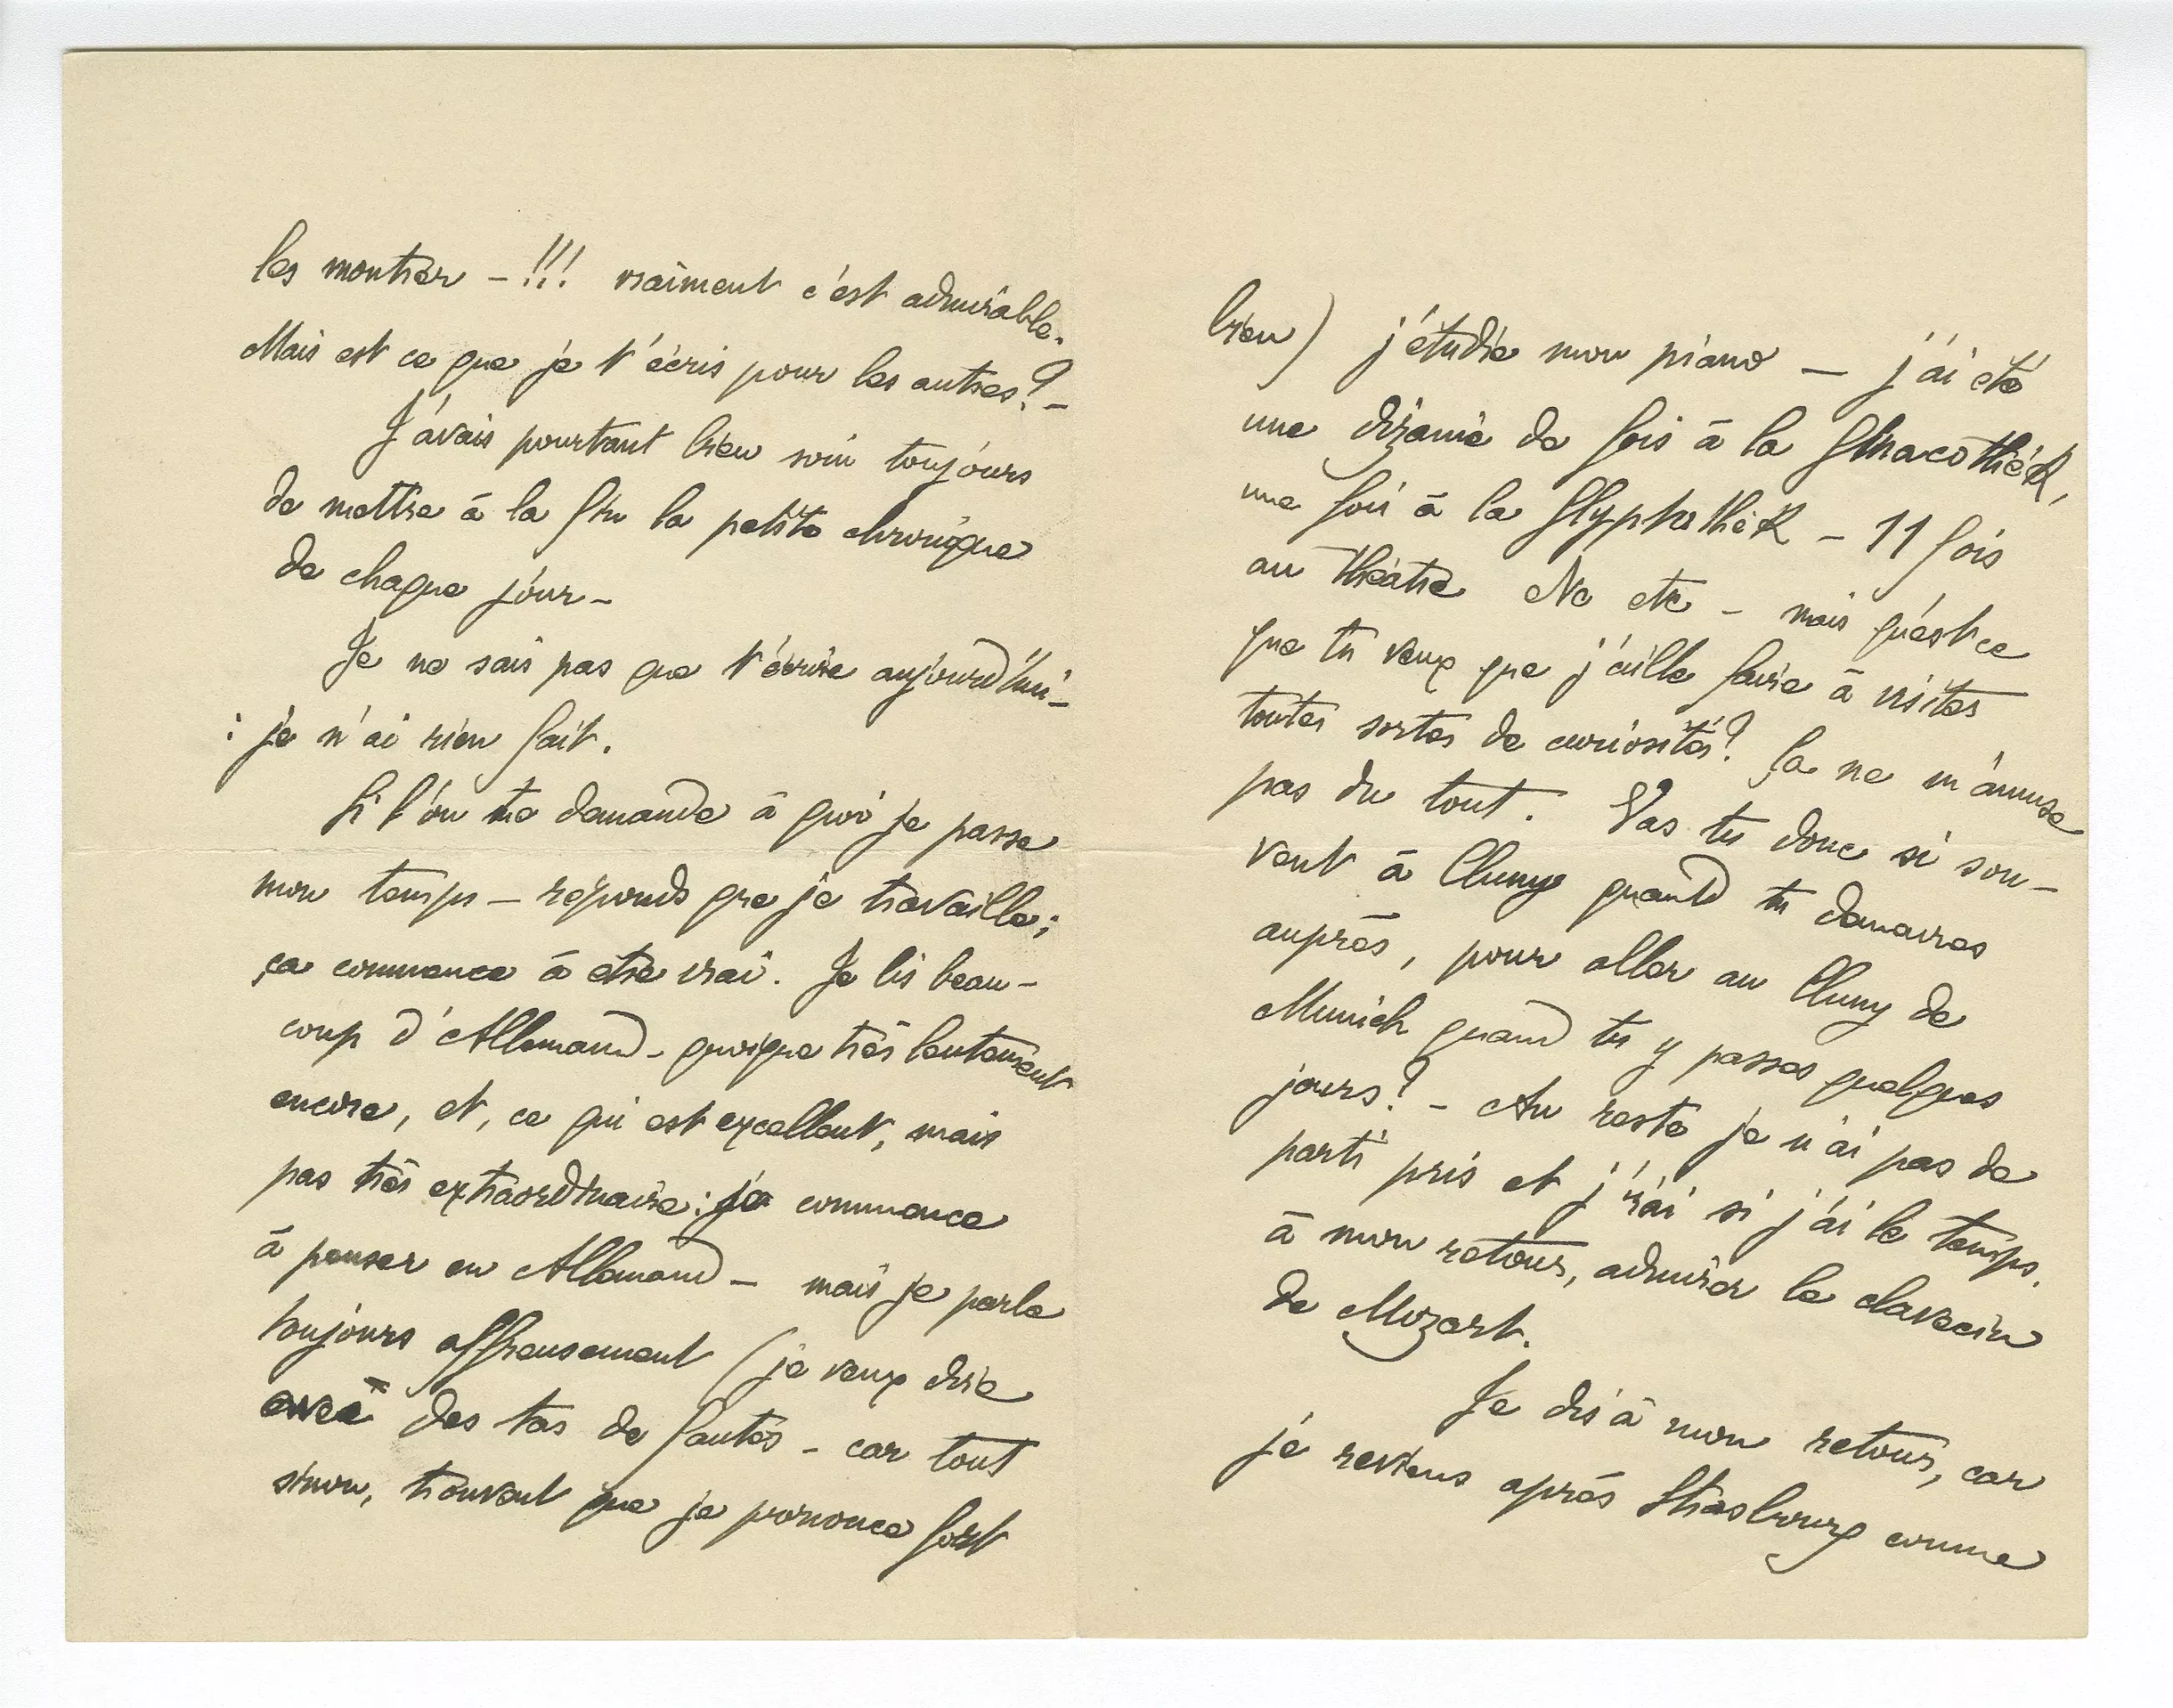 les montrer – !!! vraiment c'est admirable.
Mais est ce que je t'écris pour les autres? –
J'avais pourtant bien soin toujours
de mettre à la fin la petite chronique
de chaque jour –
Je ne sais pas que t'écrire aujourd'hui –
: je n'ai rien fait.
Si l'on te demande à quoi je passe
mon temps – réponds que je travaille;
ça commence à etre vrai. Je lis beau-
coup d'Allemand – quoique très lentement
encore, et, ce qui est excellent, mais
pas très extraordinaire: je commence
à penser en Allemand – mais je parle
toujours affreusement (je veux dire
avec des tas de fautes – car tout
sinon, trouvent que je prononce fort
bien) j'étudie mon piano – j'ai été
une dizaine de fois à la Pinacothèk,
une fois à la Glyptothèk – 11 fois
au théâtre etc etc – mais qu'est ce
que tu veux que j'aille faire à visiter
toutes sortes de curiosités? Ça ne m'amuse
pas du tout. Vas tu donc si sou-
vent à Cluny quand tu demeures
auprès, pour aller au Cluny de
Munich quand tu y passes quelques
jours? – Au reste je n'ai pas de
parti pris et j'irai si j'ai le temps,
à mon retour, admirer le clavecin
de Mozart.
Je dis à mon retour, car
je reviens après Strasbourg comme